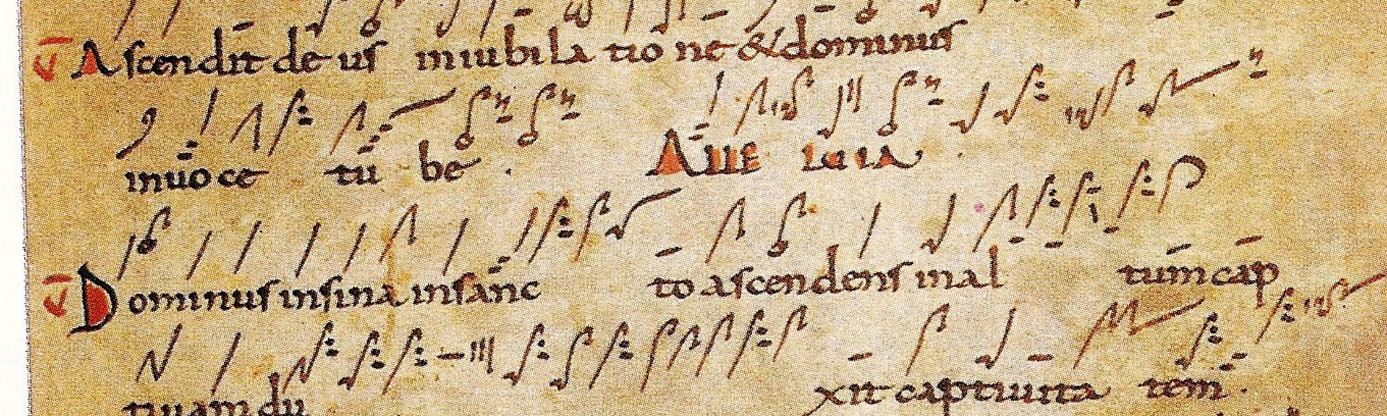 V Ascendit deus iniubilatione & dominus
inuoce tube. Alleluia
V Dominus insina insanc to ascendens inal tum cap
tiuam du xit captiuita tem.